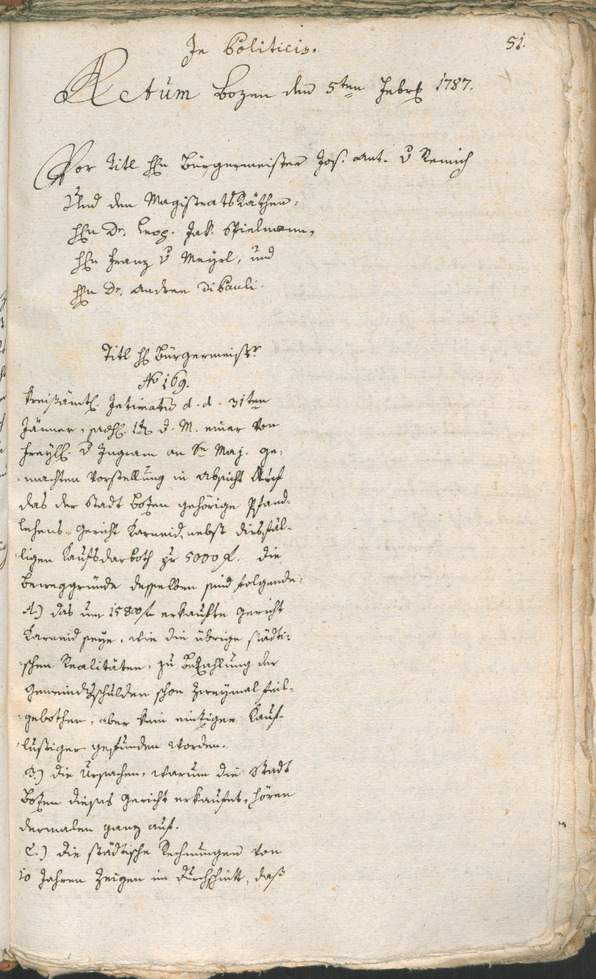 In Politicis.
51.
Actum Bozen den 5ten Febrs 1787.
Vor Titl Hhn Bürgermeister Jos. Ant. v Remich
Und den Magistrats Räthen,
Hhn Dr. Leop. Jak. Spielmann,
Hhn Franz v Mayrl, und
Hhn Dr. Andree Di Pauli.
Titl Hh Bürgermeistr
No 169.
Kreißämtl. Intimatum d. d. 31ten
Jänner, d. M. einer von
Freyll. v Ingram an Se Maj. ge-
machten Vorstellung in Absicht auf
das der Stadt Bozen gehörige Pfand-
lehens-Gericht Karneid, nebst diesfäl-
ligen Kaufsdarboth pr 5000 f. Die
Beweggründe desselben sind folgende:
A.) das um 15800 f erkaufte Gericht
Karneid seye, wie die übrige städti-
schen Realitäten, zu Bezahlung der
Gemeindsschulden schon zweymal feil-
gebothen, aber kein einziger Kauf-
lustiger gefunden worden.
B.) die Ursachen, warum die Stadt
Bozen dieses Gericht erkaufet, hören
dermalen ganz auf.
C.) die städtische Rechnungen von
10 Jahren zeigen im Durchschnitt, daß